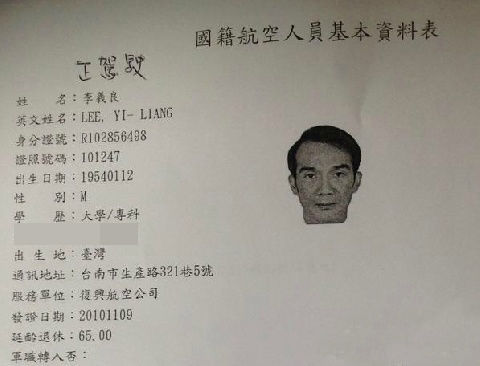 國籍航空人員基本資料表
正駕駛
姓　　名：李義良
英文姓名：LEE, YI- LIANG
身分證號：R102856498
證照號碼：101247
出生日期：19540112
性　　別：M
學　　歷：大學/專科
出 生 地：臺灣
通訊地址：台南市生產路321巷5號
服務單位：復興航空公司
發證日期：20101109
延齡退休：65.00
軍職轉入否：